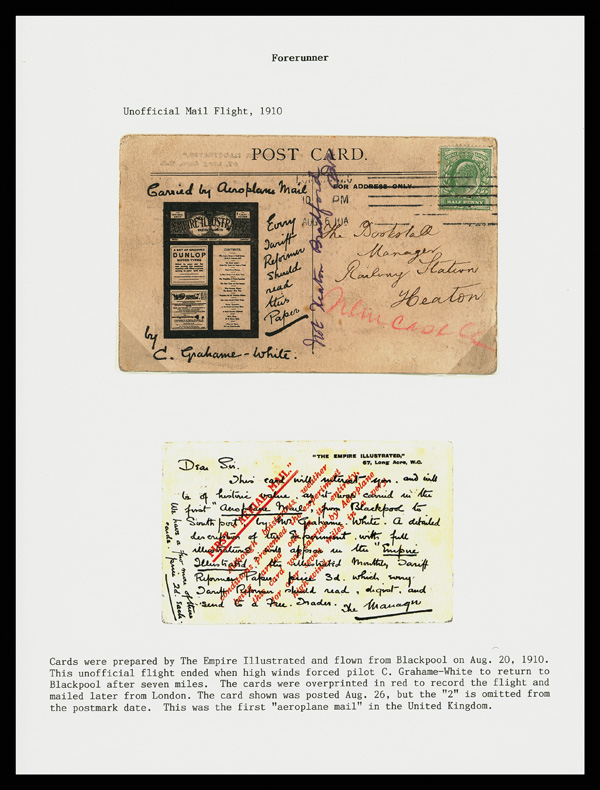 Forerunner
Unofficial Mail Flight, 1910
POST CARD.
Carried by Aeroplane Mail
FOR ADDRESS ONLY.
HALFPENNY
PM
AUG 6 10A
DUNLOP
CONTENTS
Every
Tariff
Reformer
should
read
this
Paper
by
C. Grahame-White.
Not Heaton Bradford
The Bookstall
Manager
Railway Station
Heaton
Newcastle
"THE EMPIRE ILLUSTRATED,"
67, Long Acre, W.C.
Dear Sir.
This card will interest you, and will
be of historic value as it was carried in the
first "Aeroplane Mail" from Blackpool to
Southport by Mr Grahame-White. A detailed
description of the Experiment with full
illustrations will appear in the "Empire
Illustrated", the illustrated Monthly Tariff
Reformer Paper, price 3d. which every
Tariff Reformer should read, digest and
send to a Free Trader.
The Manager
We have a few more of these
cards, price 2d. each
"FIRST AERIAL MAIL."
Although disastrous weather
conditions prevented the experiment
being carried out in its entirety,
this card was carried by Aeroplane
for over seven miles in a
high wind.
Cards were prepared by The Empire Illustrated and flown from Blackpool on Aug. 20, 1910.
This unofficial flight ended when high winds forced pilot C. Grahame-White to return to
Blackpool after seven miles. The cards were overprinted in red to record the flight and
mailed later from London. The card shown was posted Aug. 26, but the "2" is omitted from
the postmark date. This was the first "aeroplane mail" in the United Kingdom.